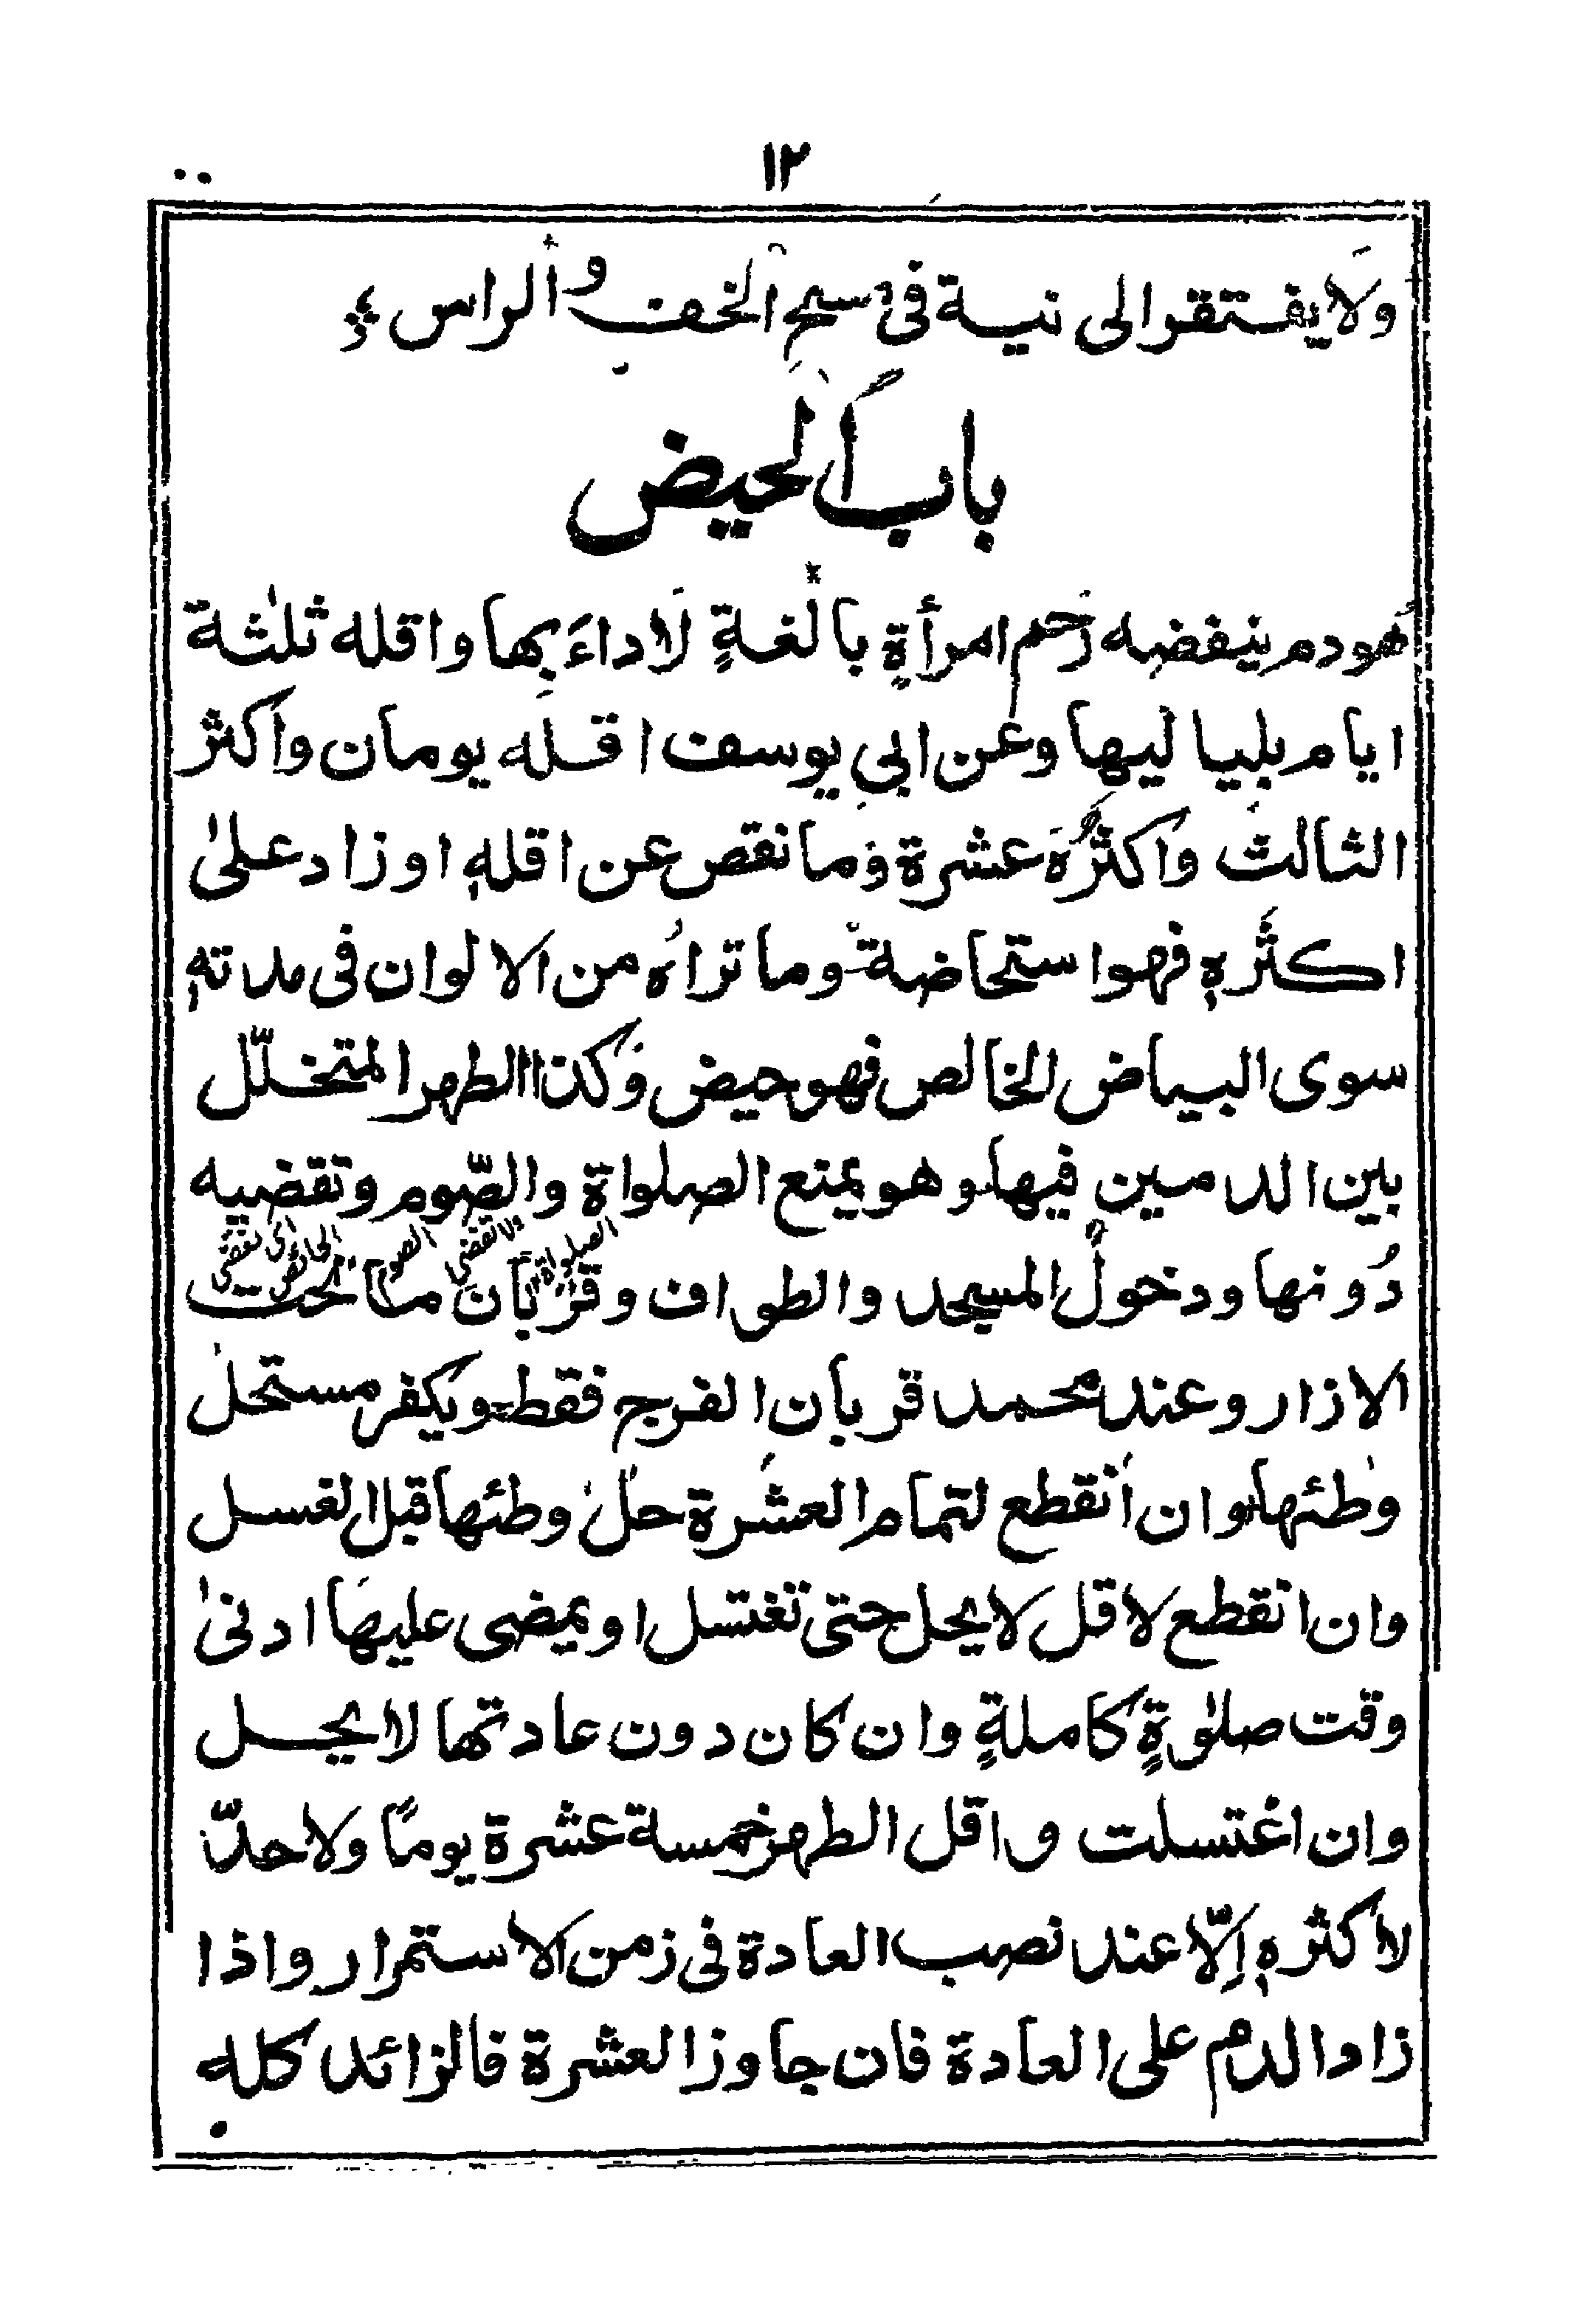 ١٢
ولا يفتقر الى نية فى مسح الخف والراس
باب الحيض
هو دم ينفضه رَحم امرأةٍ بالغةٍ لَا داءَ بِها واقله ثلٰثة
ايام بلياليها وعن ابى يوسف اقله يومان واكثر
الثالث واكثرُهَ عشرة وَما نقص عن اقلهٖ او زاد علىٰ
اكثَرهٖ فهو استحاضة وما تراهُ من الالوان فى مدتهٖ
سوى البياض الخالص فهو حيض وَكذا الطهر المتخلّل
بين الدمين فيها وهو يمنع الصلواة والصّوم وتقضيه
دُونها ودخولَ المسجد والطواف وقربان ما تحت
الصلواة
ولا تقضى
الصوم
الحائض
اى تقضى
الازار وعند محمد قربان الفرج فقط ويكفر مستحل
وطئها وان انقطع لتمام العشرة حل وطئها قبل الغسل
وان انقطع لاقل لا يحل حتى تغتسل او يمضى عليهَا ادنىٰ
وقت صلوٰةٍ كاملةٍ وان كان دون عادتها لا يحل
وان اغتسلت واقل الطهر خمسة عشرة يومًا ولا حدّ
لاكثرهٖ اِلّا عند نصب العادة فى زمن الاستمرار واذا
زاد الدم على العادة فان جاوز العشرة فالزائد كله